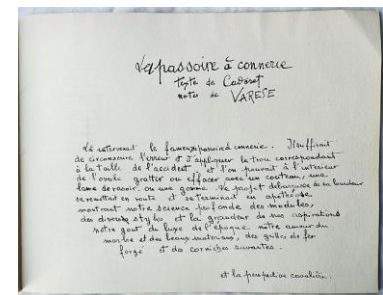 La passoire à connerie
texte de Cadoret
notes de VARESE
Là intervenait le fameux passoire à connerie. Il suffisait
de circonscrire l'erreur et d'appliquer le trou correspondant
à la taille de l'accident, et l'on pouvait à l'intérieur
de l'ovale gratter ou effacer avec un couteau, une
lame de rasoir, ou une gomme. Le projet débarrassé de sa lourdeur
se remettait en route et se terminait en apothéose
montrant notre science profonde des modules,
des divers stylos et la grandeur de nos aspirations
notre gout du luxe de l'époque, notre amour du
marbre et des beaux materiaux, des grilles de fer
forgé et des corniches savantes.
et la perspective cavalière.